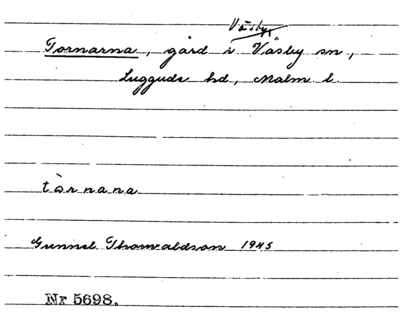 Väsby
Tornarna, gård i Väsby sn,
Luggude hd, Malm. l.
tòrnana
Gunnel Thorvaldson 1945
Nr 5698.